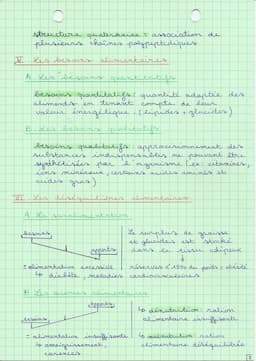 structure quaternaire = association de
plusieurs chaînes polypeptidiques
V. Les besoins alimentaires
A. Les besoins quantitatifs
besoins quantitatifs : quantité adaptée des
aliments en tenant compte de leur
valeur énergétique. (lipides + glucides)
B. Les besoins qualitatifs
besoins qualitatifs : approvisionnement des
substances indispensables ne pouvant être
synthétisées par l'organisme (ex : vitamines,
ions minéraux, certains acides aminés et
acides gras)
VI. Les déséquilibres alimentaires
A. La suralimentation
besoins
apports
Le surplus de graisse
et glucides est stocké
dans le tissu adipeux
= alimentation excessive
réserves (15% du poids : obésité
↳ diabète, maladies cardiovasculaires
B. Les
apports
besoins
↳ dénutrition : ration
alimentaire insuffisante
= alimentation insuffisante
↳ malnutrition : ration
↳ amaigrissement,
alimentaire déséquilibrée
carences